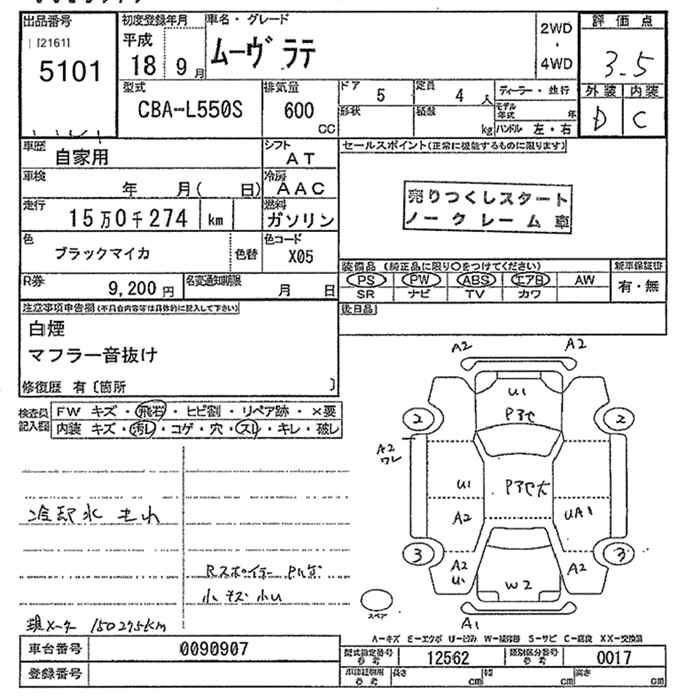 出品番号
[2161]
5101
初度登録年月
平成
18 9月
車名・グレード
ムーヴ ラテ
2WD
・
4WD
評価点
3.5
外装 内装
D C
型式
CBA-L550S
排気量
600
CC
ドア 5
定員 4人
形状
積載 kg
ディーラー・並行
モデル年式 年
ハンドル 左・右
車歴
自家用
シフト
AT
セールスポイント(正常に機能するものに限ります)
売りつくしスタート
ノークレーム車
車検
年 月( 日)
冷房
AAC
走行
15万0千274 km
燃料
ガソリン
色
ブラックマイカ
色替
色コード
X05
R券
9,200円
名変通知期限
月 日
装備品 (純正品に限り○をつけてください)
PS PW ABS エアB AW
SR ナビ TV カワ
新車保証書
有・無
後日品
注意事項申告欄(不具合内容等は具体的に記入して下さい)
白煙
マフラー音抜け
修復歴 有〔箇所 〕
検査員記入欄
FW キズ・飛石・ヒビ割・リペア跡・×要
内装 キズ・汚レ・コゲ・穴・スレ・キレ・破レ
冷却水 モレ
Rスポイラー
小キズ 小U
現メーター 150275KM
A2 A2
U1
2 2
A2
ワレ
U1
A2
UA1
3 3
A2
U1
A2
W2
A1
スペア
A-キズ E-エクボ U-凹み W-補修跡 S-サビ C-腐食 XX-交換済
車台番号
0090907
登録番号
型式指定番号
参考
12562
類別区分番号
参考
0017
車庫証明用
参考
長さ cm
幅 cm
高さ cm